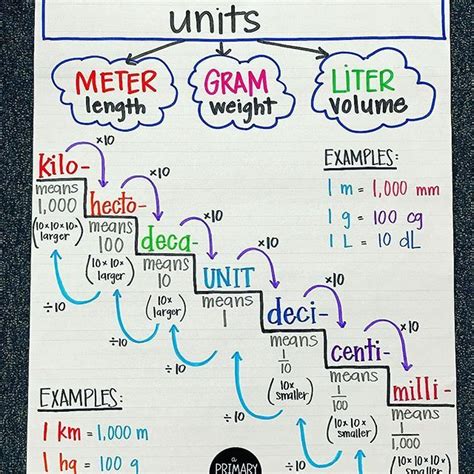 units
METER GRAM LITER
length weight volume
×10
kilo-
means
1,000
(10x10x10x
larger)
×10
hecto-
means
100
(10x10x
larger)
×10
deca-
means
10
(10x
larger)
×10
UNIT
means
1
×10
deci-
means
1/10
(10x
smaller)
×10
centi-
means
1/100
(10x10x
smaller)
milli-
means
1/1,000
(10x10x10x
smaller)
÷10
÷10
÷10
÷10
÷10
÷10
EXAMPLES:
1 m = 1,000 mm
1 g = 100 cg
1 L = 10 dL
EXAMPLES:
1 km = 1,000 m
1 hg = 100 g
a
PRIMARY